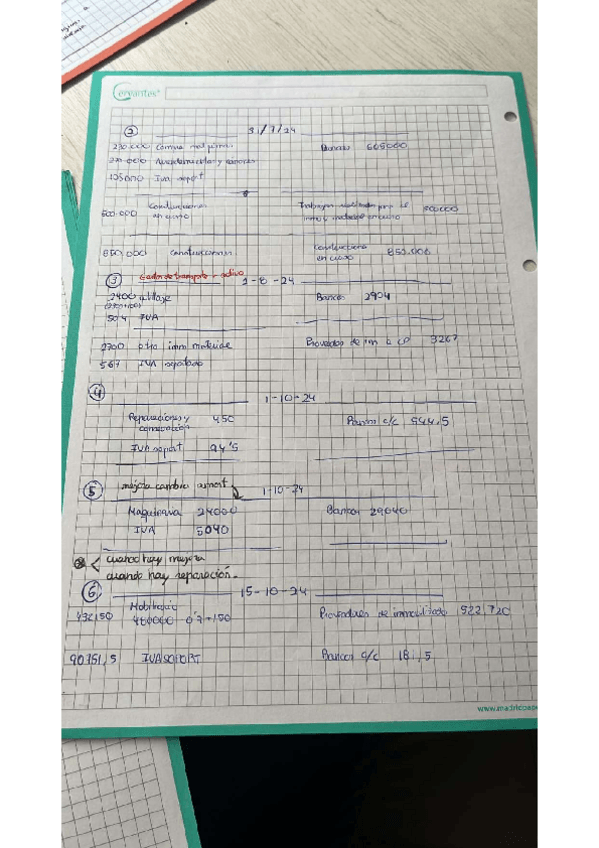 Cervantes
② 31/7/24
230.000 Compras mat primas Bancos 605000
270.000 y
105000 IVA soport
600.000 Construcciones en curso Trabajos realizados para el inmov material en curso
850.000 Construcciones Construcciones en curso 850.000
③ Gastos de transporte → activo 2-8-24
2400 utillaje Bancos 2904
504 IVA
2700 otro inmo material Proveedor de inm a cp 3267
567 IVA soportado
④ 1-10-24
Reparaciones y conservación 450 Bancos c/c 544,5
IVA soport 94'5
⑤ mejora cambia amort 1-10-24
Maquinaria 24000 Bancos 29040
IVA 5040
cuando hay mejora
cuando hay reparación.
⑥ 15-10-24
Mobiliario
432150 480000 · 0'9 + 150 Proveedores de inmovilizado 522.720
90751,5 IVA SOPORT Bancos c/c 181,5